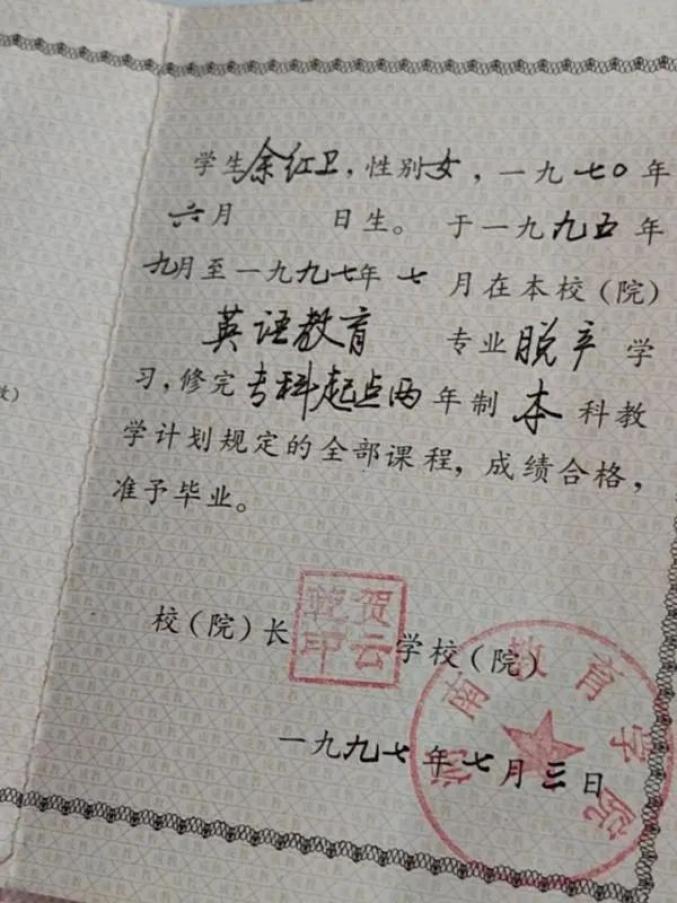 学生余红卫，性别女，一九七〇年
六月 日生。于一九九五年
九月至一九九七年七月在本校（院）
英语教育 专业脱产学
习，修完专科起点两年制本科教
学计划规定的全部课程，成绩合格，
准予毕业。
校（院）长 学校（院）
贺云
印
南教育学院
一九九七年七月三日